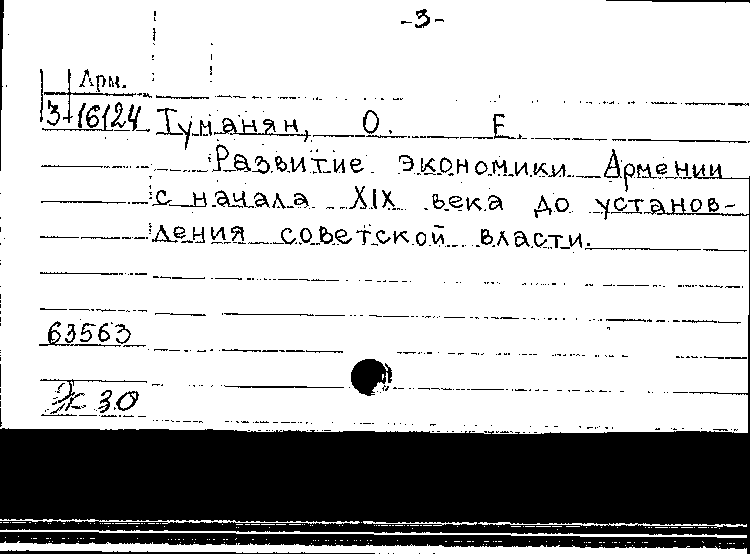 -3-
Арм.
3-16124 Туманян, О. Е.
Развитие экономики Армении
с начала XIX века до установ-
ления советской власти.
63563
Эк 30